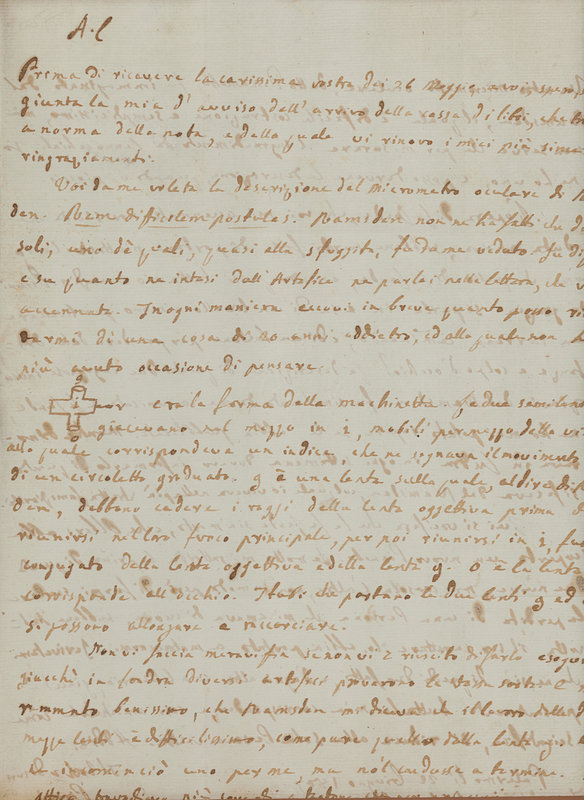 A. C
Prima di ricevere la carissima vostra dei 26 Maggio avvi
giunta la mia d'avviso dell'arrivo della cassa di libri, che
a norma della nota, e della quale vi rinovo i miei più
ringraziamenti.
Voi da me volete la descrizione del micrometro oculare di
den. Rem difficilem postulas. Ramsden non ne ha fatti che
soli; uno de quali, quasi alla sfuggita, fu da me veduto.
e su quanto ne intesi dall'Artefice ne parlai nella lettera, che
accennate. In ogni maniera eccovi in breve quanto posso
darmi di una cosa di 20 anni addietro, ed alla quale non
più avuto occasione di pensare.
g
i
o
era la forma della macchinetta. Le due
giacevano nel mezzo in i, mobili per mezzo della
alla quale corrispondeva un indice, che ne segnava il movimento
di un circoletto graduato. g è una lente sulla quale, al dire di
den, debbono cadere i raggi della lente oggettiva prima
riunirsi nel loro fuoco principale, per poi riunirsi in i,
conjugato della lente oggettiva e della lente g. o è la lente
corrisponde all'occhio. I tubi che portano le due lenti g ed
si possono allongare e raccorciare.
Non vi faccia meraviglia se non vi è riescito di farlo
giacchè in Londra diversi artefici provarono la stessa sorte. E
rammento benissimo, che Ramsden mi diceva che il lavoro delle
mezze lenti è difficilissimo, come pure quello della lente g
Ei incominciò uno per me, ma nol condusse a termine.